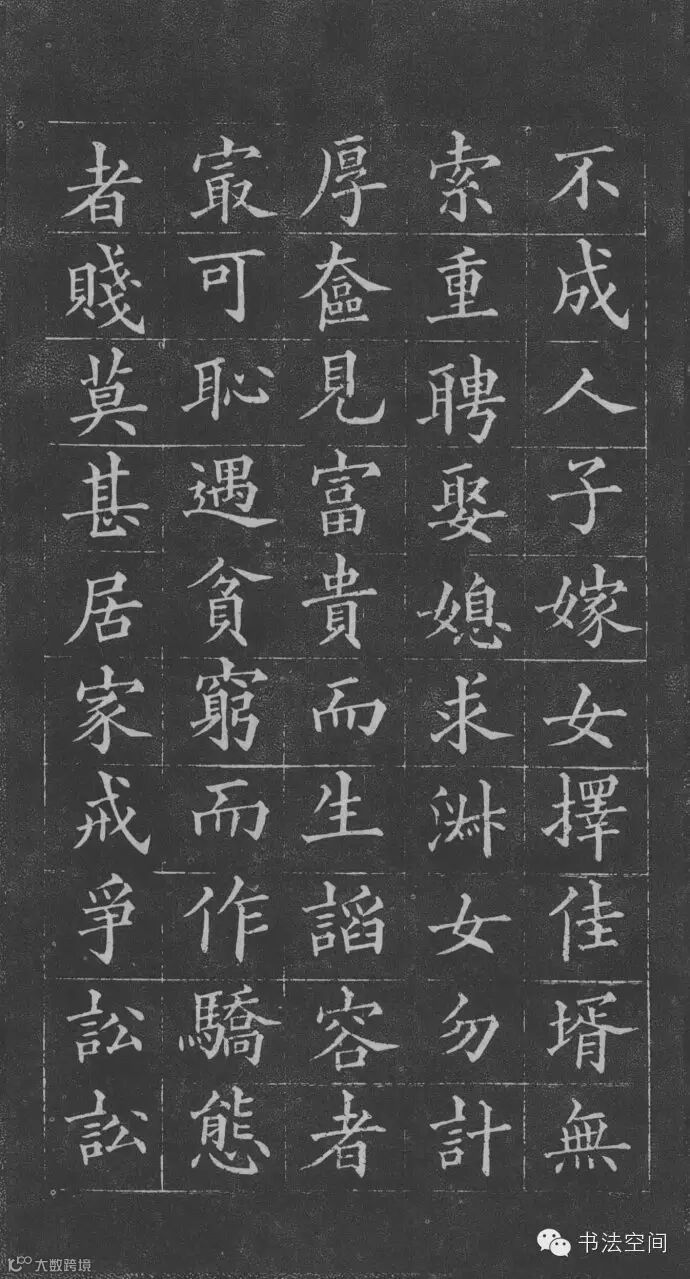 不成人子嫁女擇佳壻無
索重聘娶媳求淑女勿計
厚奩見富貴而生謟容者
冣可恥遇貧窮而作驕態
者賤莫甚居家戒爭訟訟
书法空间
大数跨境